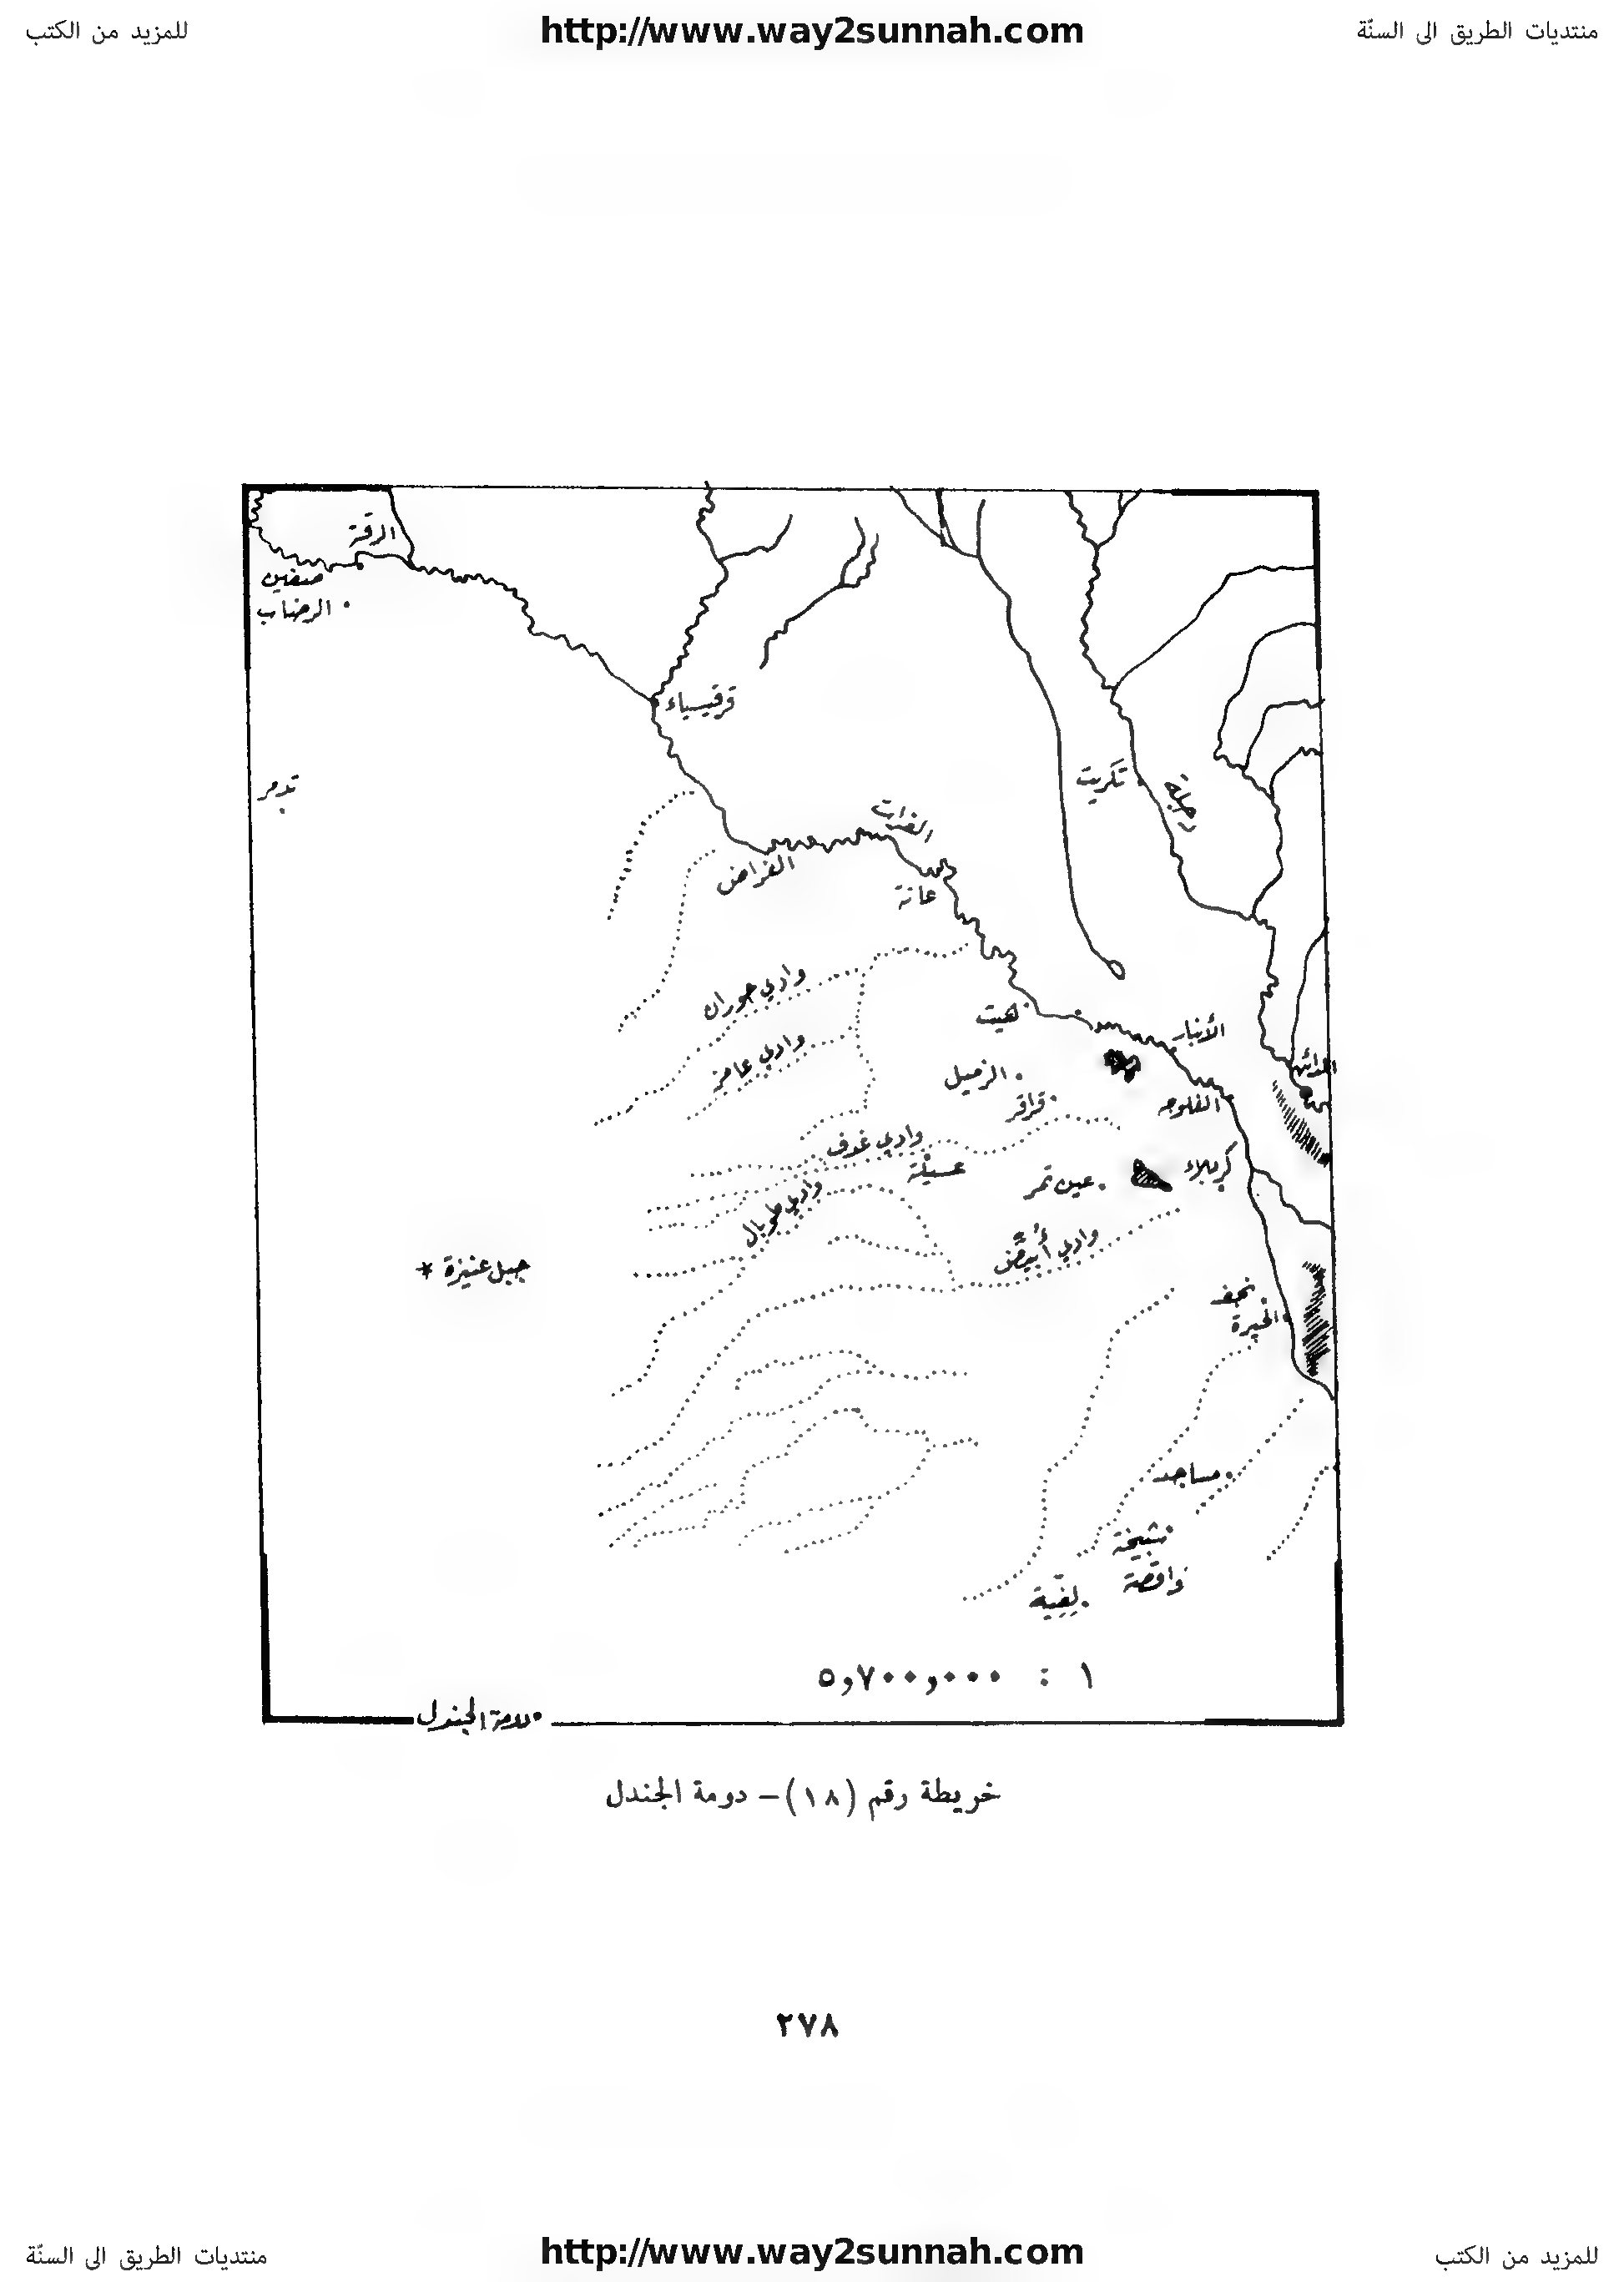 منتديات الطريق الى السنّة
http://www.way2sunnah.com
للمزيد من الكتب
الرقة
صفين
الرضاب
قرقيسياء
تدمر
تكريت
دجلة
الفرات
الفراض
عانة
وادي حوران
هيت
الأنبار
وادي عامز
المدائن
الزميل
قراقر
الفلوجه
وادي غدف
عسيلة
كربلاء
عين تمر
وادي أبيض
جبل عنيزة
نجف
الحيرة
مساجد
شبيخة
واقصة
لفية
١ : ٥,٧٠٠,٠٠٠
دومة الجندل
خريطة رقم (١٨) – دومة الجندل
٢٧٨
للمزيد من الكتب
http://www.way2sunnah.com
منتديات الطريق الى السنّة